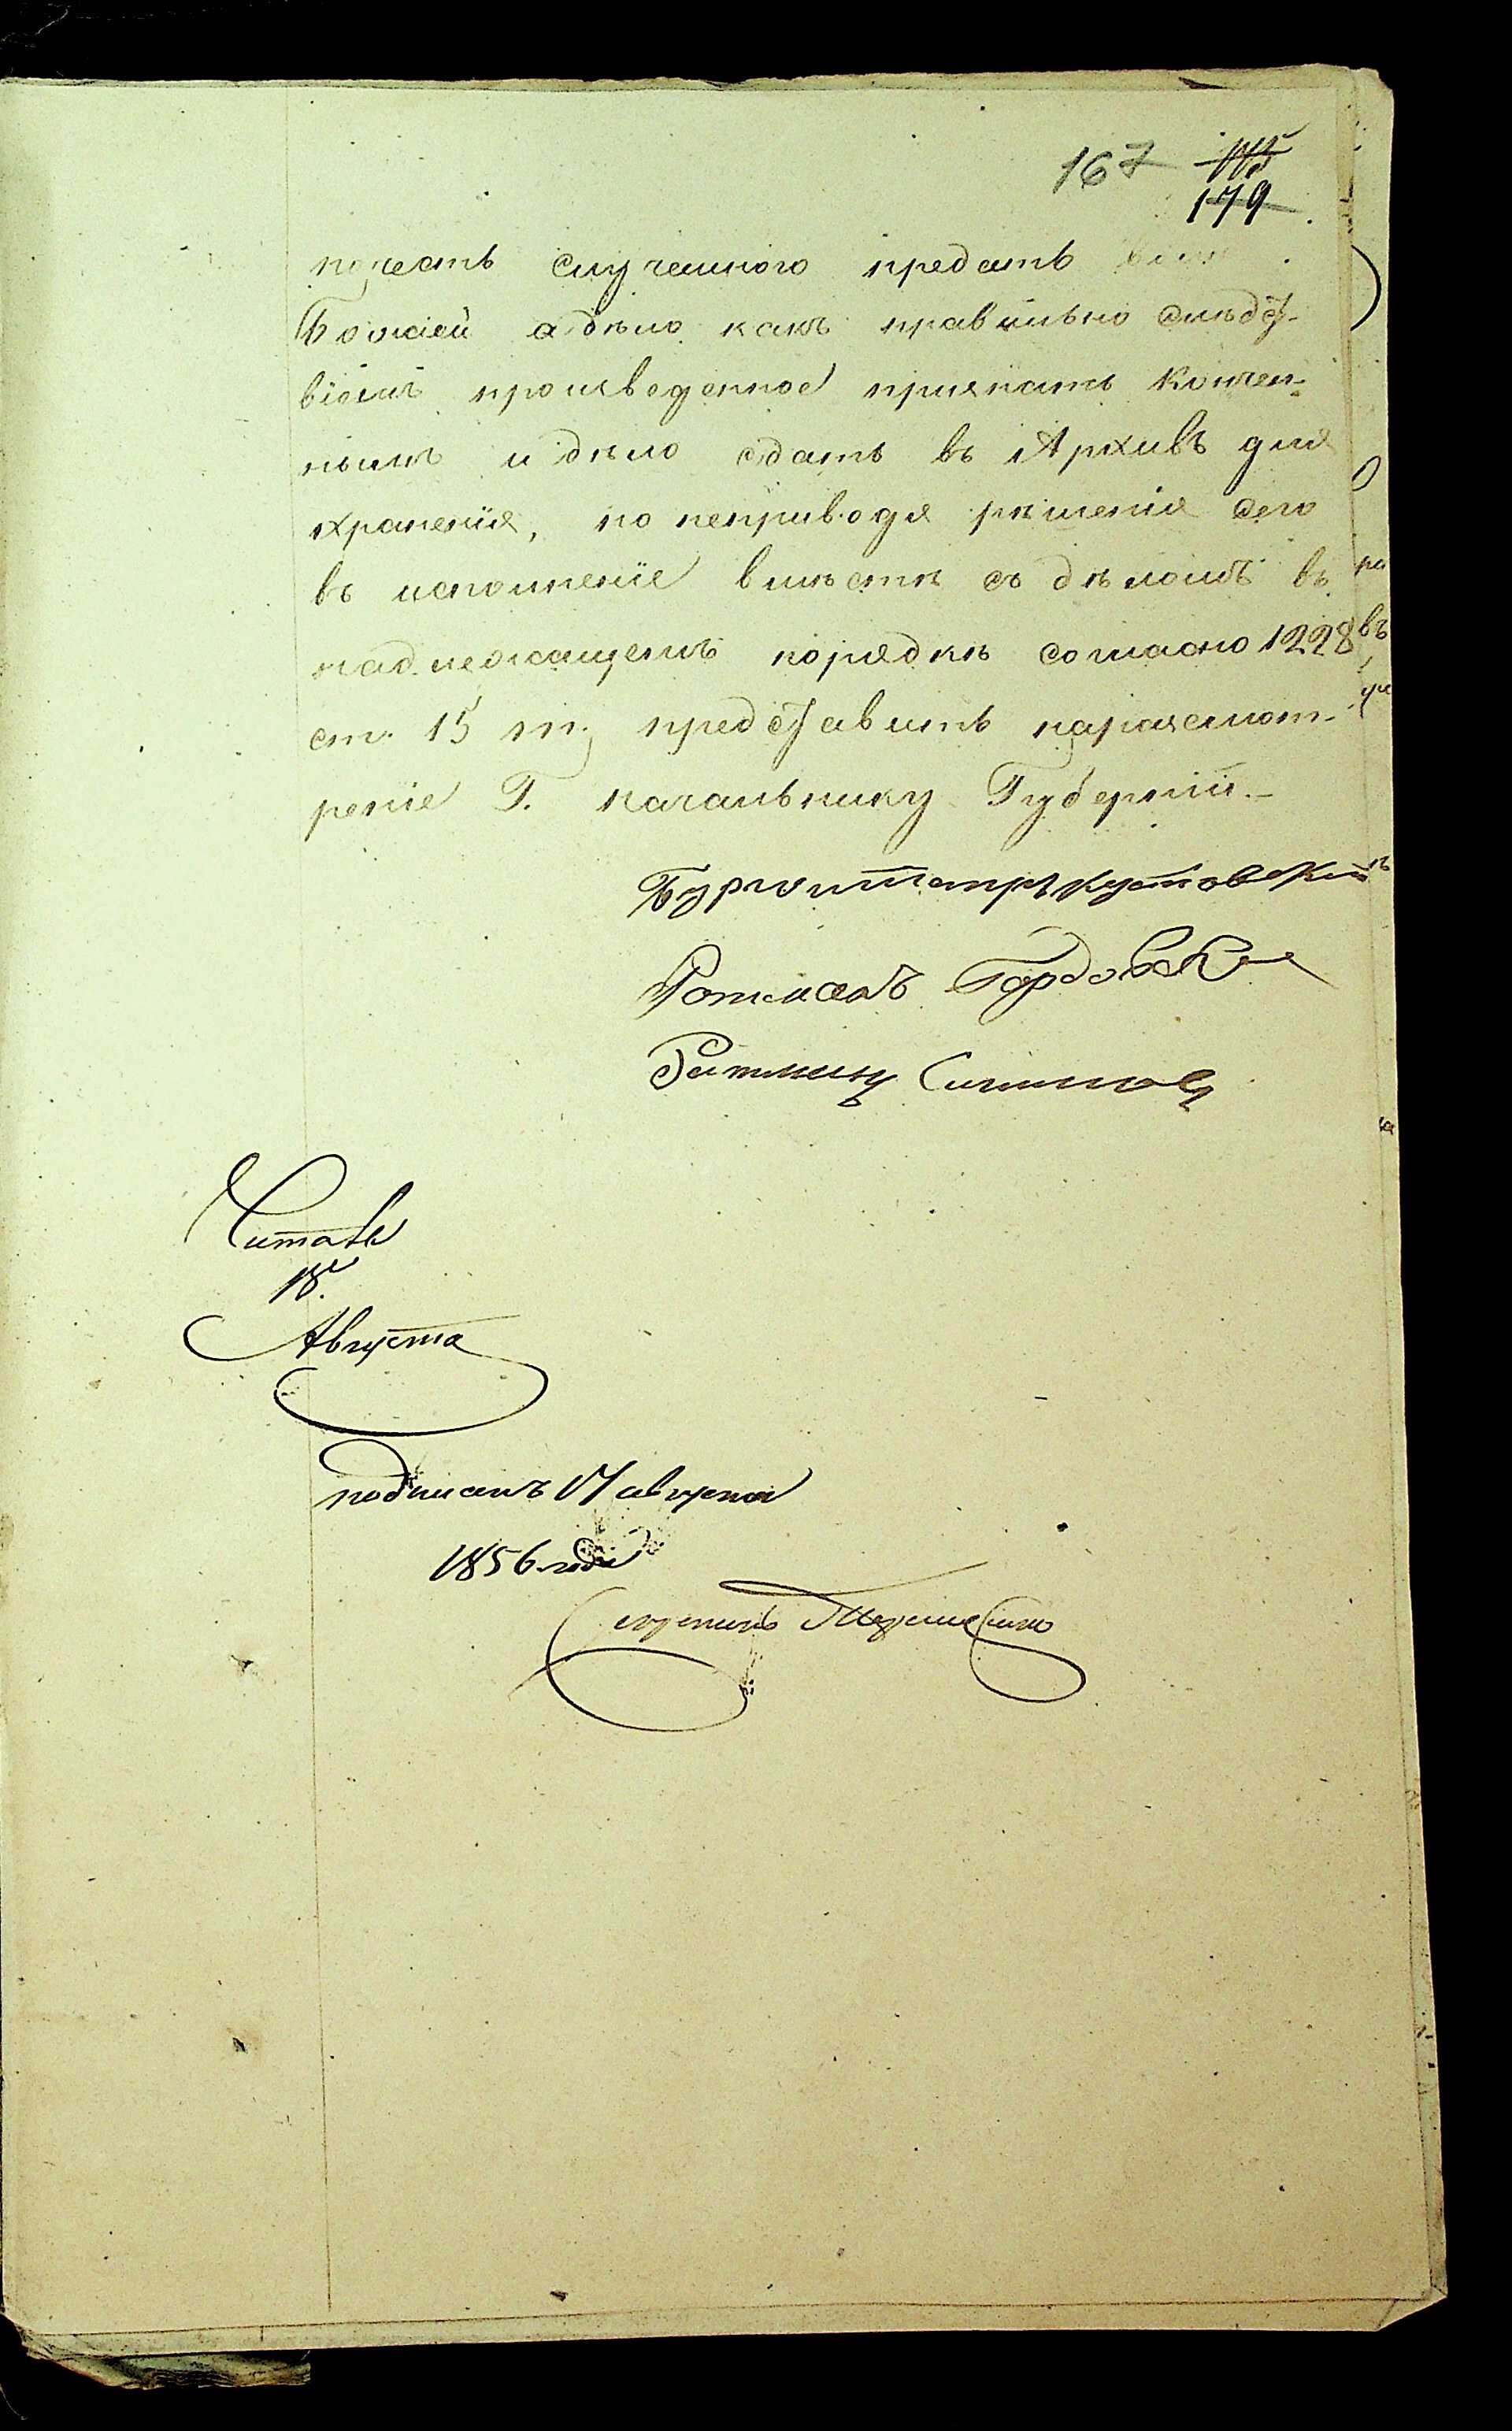 167
179
почесть случайного предать воли
Божіей а дѣло какъ правильно слѣдст-
віемъ произведенное признать Кончен-
нымъ и дѣло сдать въ Архивъ для
храненія, но неприводя рѣшенія сего
въ исполненіе вмѣстѣ съ дѣломъ въ
надлежащемъ порядкѣ согласно 1228
ст. 15 т. представить наразсмот-
реніе Г. начальнику Губерніи.-
Бургомистръ Кустовскій
Ратманъ
Ратманъ
Читалъ
18
Августа
подписанъ 17 августа
1856 года